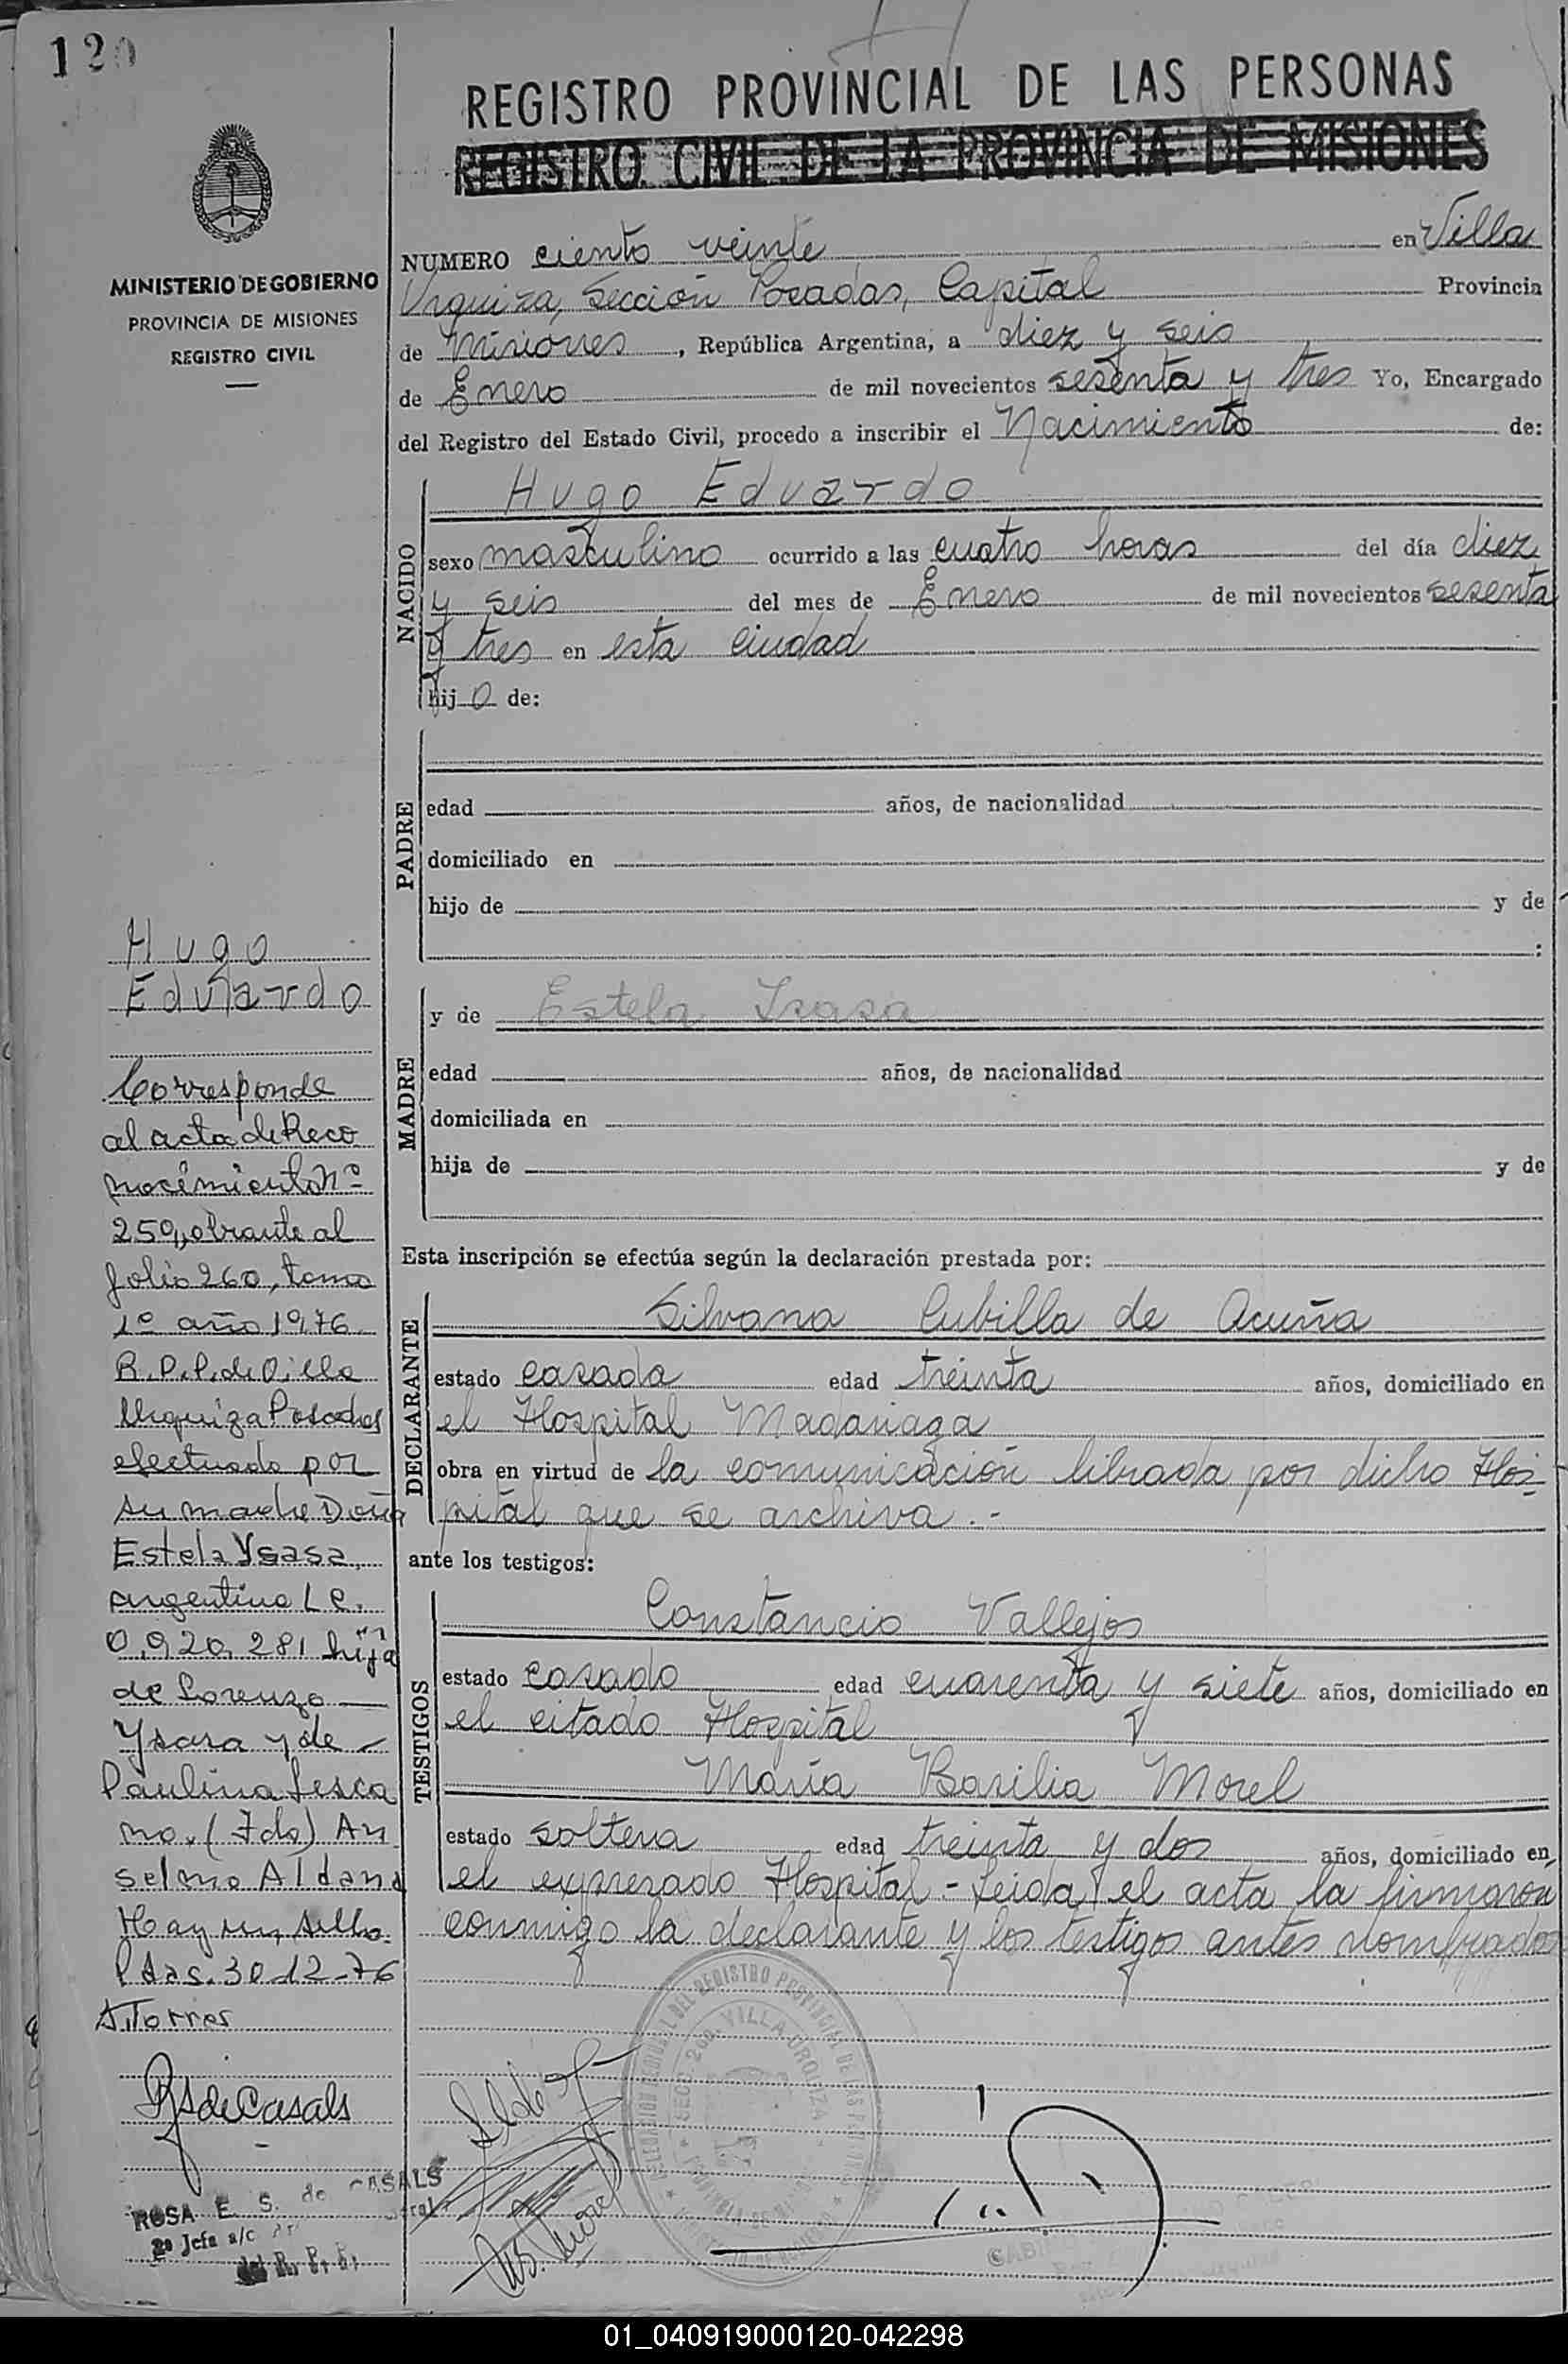 120
REGISTRO PROVINCIAL DE LAS PERSONAS
REGISTRO CIVIL DE LA PROVINCIA DE MISIONES
MINISTERIO DE GOBIERNO
PROVINCIA DE MISIONES
REGISTRO CIVIL
NUMERO ciento veinte en Villa
Urquiza, Sección Posadas, Capital Provincia
de Misiones, República Argentina, a diez y seis
de Enero de mil novecientos sesenta y tres Yo, Encargado
del Registro del Estado Civil, procedo a inscribir el Nacimiento de:
NACIDO
Hugo Eduardo
sexo masculino ocurrido a las cuatro horas del día diez
y seis del mes de Enero de mil novecientos sesenta
y tres en esta ciudad
hijo de:
PADRE
edad años, de nacionalidad
domiciliado en
hijo de y de
:
MADRE
y de Estela Isasa
edad años, de nacionalidad
domiciliada en
hija de y de
Esta inscripción se efectúa según la declaración prestada por:
DECLARANTE
Silvana Cubilla de Acuña
estado casada edad treinta años, domiciliado en
el Hospital Madariaga
obra en virtud de la comunicación librada por dicho Hos-
pital que se archiva.-
ante los testigos:
TESTIGOS
Constancio Vallejos
estado casado edad cuarenta y siete años, domiciliado en
el citado Hospital
María Basilia Morel
estado soltera edad treinta y dos años, domiciliado en
el expresado Hospital - Leida el acta la firmaron
conmigo la declarante y los testigos antes nombrados
Hugo
Eduardo
Corresponde
al acta de Reco
nocimiento Nº
259, obrante al
folio 260, tomo
1º año 1976
R.P.P. de Villa
Urquiza Posadas
efectuado por
su madre Doña
Estela Ysasa,
argentina L.C.
0.920.281 hija
de Lorenzo
Ysasa y de
Paulina Lesca
no. (Fdo) An
selmo Aldana
Hay un sello.
Pdas. 30-12-76
A. Torres
RSdeCasals
ROSA E. S. de CASALS
2º Jefa a/c
del R. P. P.
DELEGACION REGIONAL DEL REGISTRO PROVINCIAL DE LAS PERSONAS
SECC. 2da. VILLA URQUIZA
PROVINCIA DE MISIONES
01_040919000120-042298